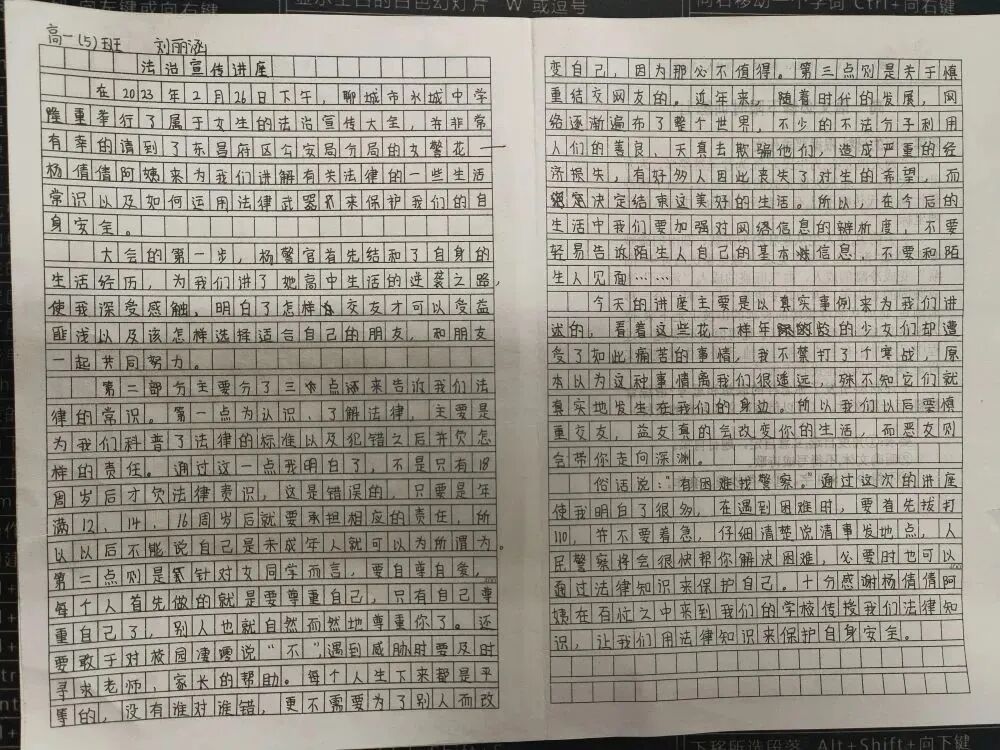 向左键或向右键
显示空白的白色幻灯片 W 或逗号
向右移动一个字词 Ctrl+向右键
高一(5)班 刘丽涵
法治宣传讲座
在2023年2月26日下午，聊城市水城中学
隆重举行了属于女生的法治宣传大会，并非常
有幸的请到了东昌府区公安局分局的女警花——
杨倩倩阿姨来为我们讲解有关法律的一些生活
常识以及如何运用法律武器来保护我们的自
身安全。
大会的第一步，杨警官首先结和了自身的
生活经历，为我们讲了她高中生活的逆袭之路，
使我深受感触，明白了怎样交友才可以受益
匪浅以及该怎样选择适合自己的朋友，和朋友
一起共同努力。
第二部分主要分了三点来告诉我们法
律的常识。第一点为认识、了解法律，主要是
为我们科普了法律的标准以及犯错之后并欠怎
样的责任。通过这一点我明白了，不是只有18
周岁后才欠法律责识，这是错误的，只要是年
满12、14、16周岁后就要承担相应的责任，所
以以后不能说自己是未成年人就可以为所谓为。
第二点则是针对女同学而言，要自尊自爱，
每个人首先做的就是要尊重自己，只有自己尊
重自己了，别人也就自然而然地尊重你了。还
要敢于对校园凄凌说“不”，遇到威胁时要及时
寻求老师，家长的帮助。每个人生下来都是平
等的，没有谁对谁错，更不需要为了别人而改
变自己，因为那必不值得。第三点则是关于慎
重结交网友的。近年来，随着时代的发展，网
络逐渐遍布了整个世界，不少的不法分子利用
人们的善良、天真去欺骗他们，造成严重的经
济损失，有好多人因此丧失了对生的希望，而
决定结束这美好的生活。所以，在今后的
生活中我们要加强对网络信息的辨析度，不要
轻易告诉陌生人自己的基本信息，不要和陌
生人见面……
今天的讲座主要是以真实事例来为我们讲
述的，看着这些花一样年龄的少女们却遭
受了如此痛苦的事情，我不禁打了个寒战，原
本以为这种事情离我们很遥远，殊不知它们就
真实地发生在我们的身边。所以我们以后要慎
重交友，益友真的会改变你的生活，而恶友则
会带你走向深渊。
俗话说：“有困难找警察。”通过这次的讲座
使我明白了很多，在遇到困难时，要首先拔打
110，并不要着急，仔细清楚说清事发地点，人
民警察将会很快帮你解决困难，必要时也可以
通过法律知识来保护自己。十分感谢杨倩倩阿
姨在百忙之中来到我们的学校传授我们法律知
识，让我们用法律知识来保护自身安全。
下移所选段落 Alt+Shift+向下键